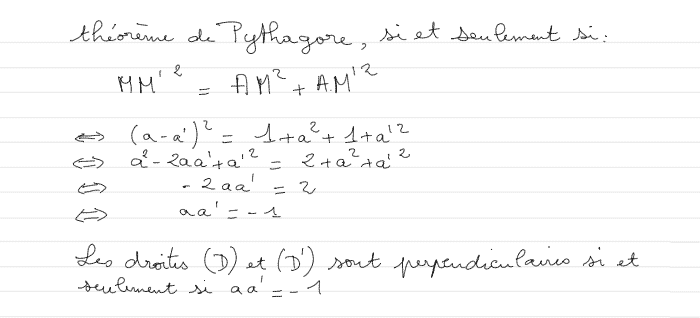 théorème de Pythagore, si et seulement si:
MM'² = AM² + AM'²
⇔ (a-a')² = 1+a²+1+a'²
⇔ a²-2aa'+a'² = 2+a²+a'²
⇔ -2aa' = 2
⇔ aa' = -1
Les droites (D) et (D') sont perpendiculaires si et
seulement si aa' = -1